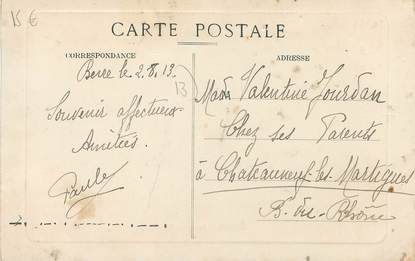 15 €
CARTE POSTALE
CORRESPONDANCE
ADRESSE
Berre le 2.8.13.
13
Souvenir affectueux
Amitiés.
Paule
Valentine Jourdan
Chez ses Parents
à Chateauneuf-les-Martigues
B. du-Rhône